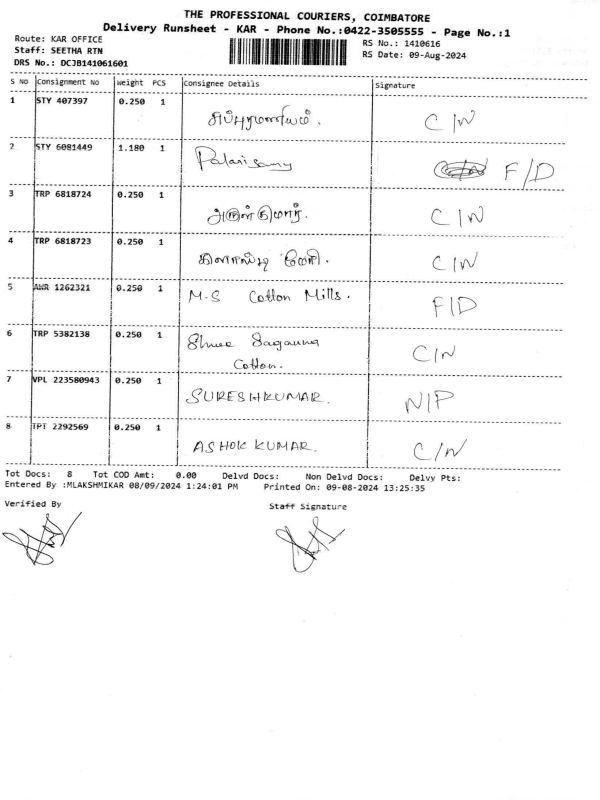 THE PROFESSIONAL COURIERS, COIMBATORE
Delivery Runsheet - KAR - Phone No.:0422-3505555 - Page No.:1
Route: KAR OFFICE
Staff: SEETHA RTN
DRS No.: DCJB141061601
RS No.: 1410616
RS Date: 09-Aug-2024
S NO Consignment No Weight PCS Consignee Details Signature
1 STY 407397 0.250 1 சுப்புரமணியம். C/N
2 STY 6081449 1.180 1 Palanisamy F/D
3 TRP 6818724 0.250 1 C/N
4 TRP 6818723 0.250 1 C/N
5 AWR 1262321 0.250 1 M.S Cotton Mills. F/D
6 TRP 5382138 0.250 1 Shree C/N
Cotton.
7 VPL 223580943 0.250 1 SURESHKUMAR. N/P
8 TPT 2292569 0.250 1 ASHOK KUMAR. C/N
Tot Docs: 8 Tot COD Amt: 0.00 Delvd Docs: Non Delvd Docs: Delvy Pts:
Entered By :MLAKSHMIKAR 08/09/2024 1:24:01 PM Printed On: 09-08-2024 13:25:35
Verified By Staff Signature